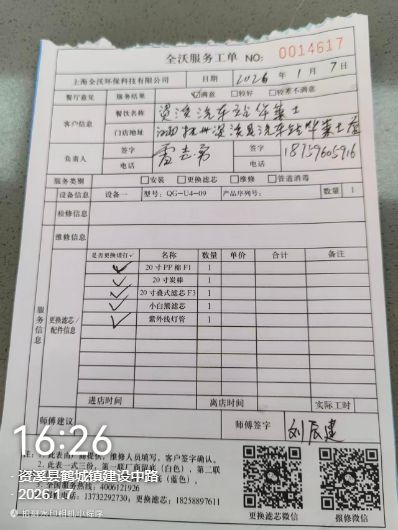 全沃服务工单 NO: 0014617
上海全沃环保科技有限公司 日期 2026 年 1 月 7 日
餐厅意见 服务结果 ☑满意 □较好 □较差不满意
客户信息 餐饮名称 资溪汽车站华莱士
门店地址
负责人 签字 签字 18759605916
电话 电话
服务类别 □安装 □更换滤芯 □维修 □管道消毒
设备信息 设备一 型号: QG-U4-09 产品序列号: 数量 1
检修信息
维修信息
服务信息
更换滤芯/配件信息
是否更换请打✓ 名称 数量 单价 合计 备注
✓ 20寸PP棉F1 1
✓ 20寸炭棒 1
✓ 20寸叠式滤芯F3 1
✓ 小白熊滤芯 1
✓ 紫外线灯管 1
进店时间 离店时间 实际工时
师傅建议 师傅签字 刘辰建
16:26
资溪县鹤城镇建设中路
2026.1.7
维修人员填写、客户签字确认。
2、此表一式三份,第一联厂商保底（白色），第二联
4006121926
13732292730, 更换滤芯: 18258897611
更换滤芯微信 报修微信